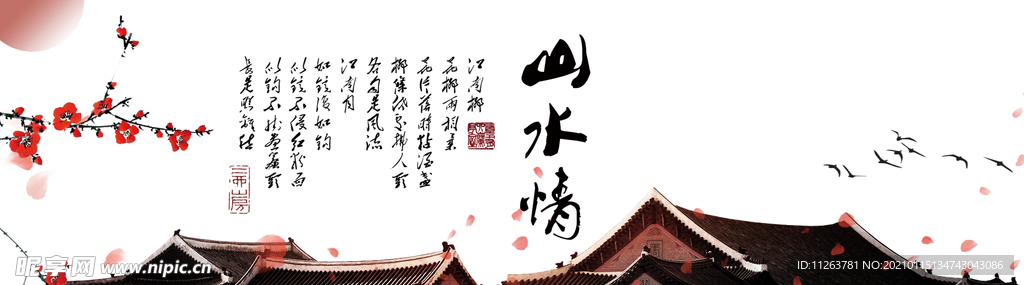 山水情
江南柳
花柳兩相柔
花片落時黏酒盞
柳條低處拂人頭
各自是風流
江南月
如鏡復如鉤
似鏡不侵紅粉面
似鉤不挂畫簾頭
長是照離愁
昵享网 www.nipic.cn
ID:11263781 NO:20210115134743043086